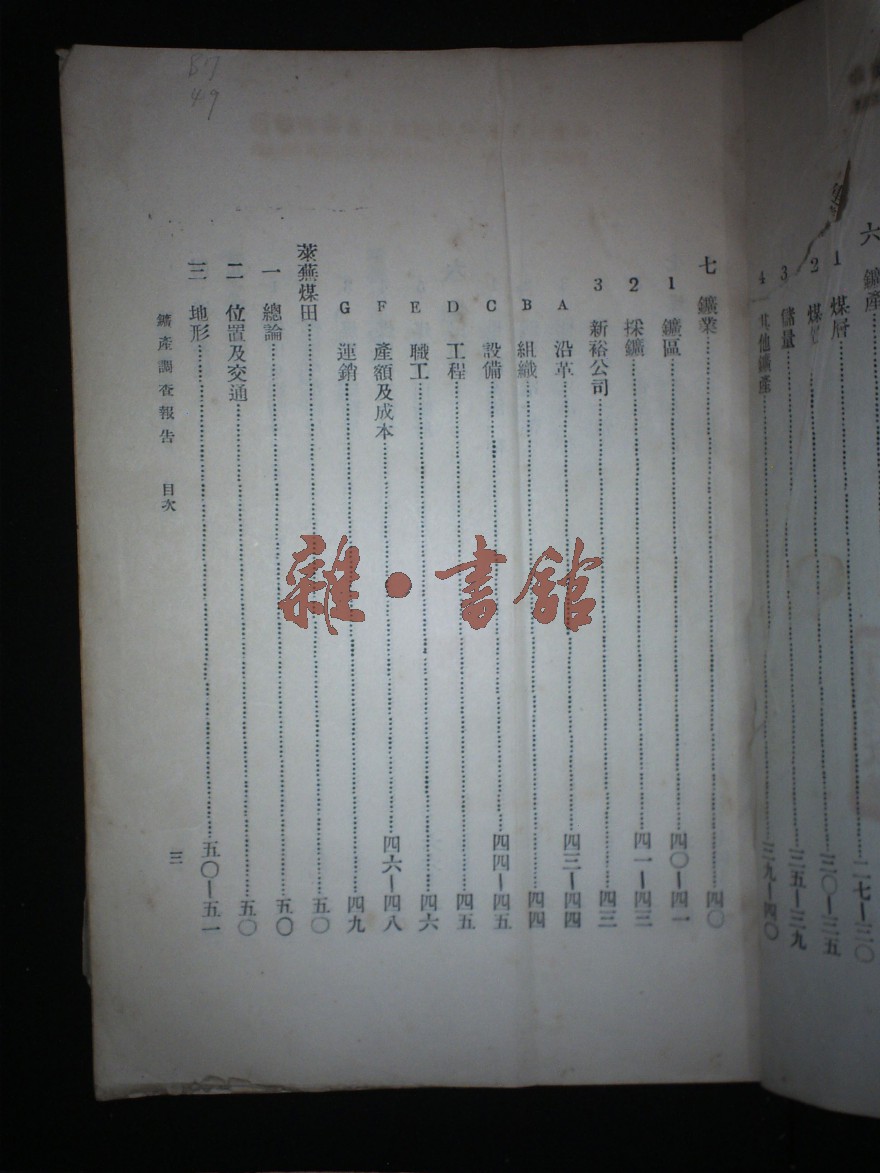 六 鑛產……二七—三〇
1 煤層……三〇—三五
2 煤
3 儲量……三五—三九
4 其他鑛產……三九—四〇
七 鑛業……四〇
1 鑛區……四〇—四一
2 採鑛……四一—四三
3 新裕公司……四三
A 沿革……四三—四四
B 組織……四四
C 設備……四四—四五
D 工程……四五
E 職工……四六
F 產額及成本……四六—四八
G 運銷……四九
萊蕪煤田……五〇
一 總論……五〇
二 位置及交通……五〇
三 地形……五〇—五一
鑛產調查報告 目次 三
87
49
雜·書館